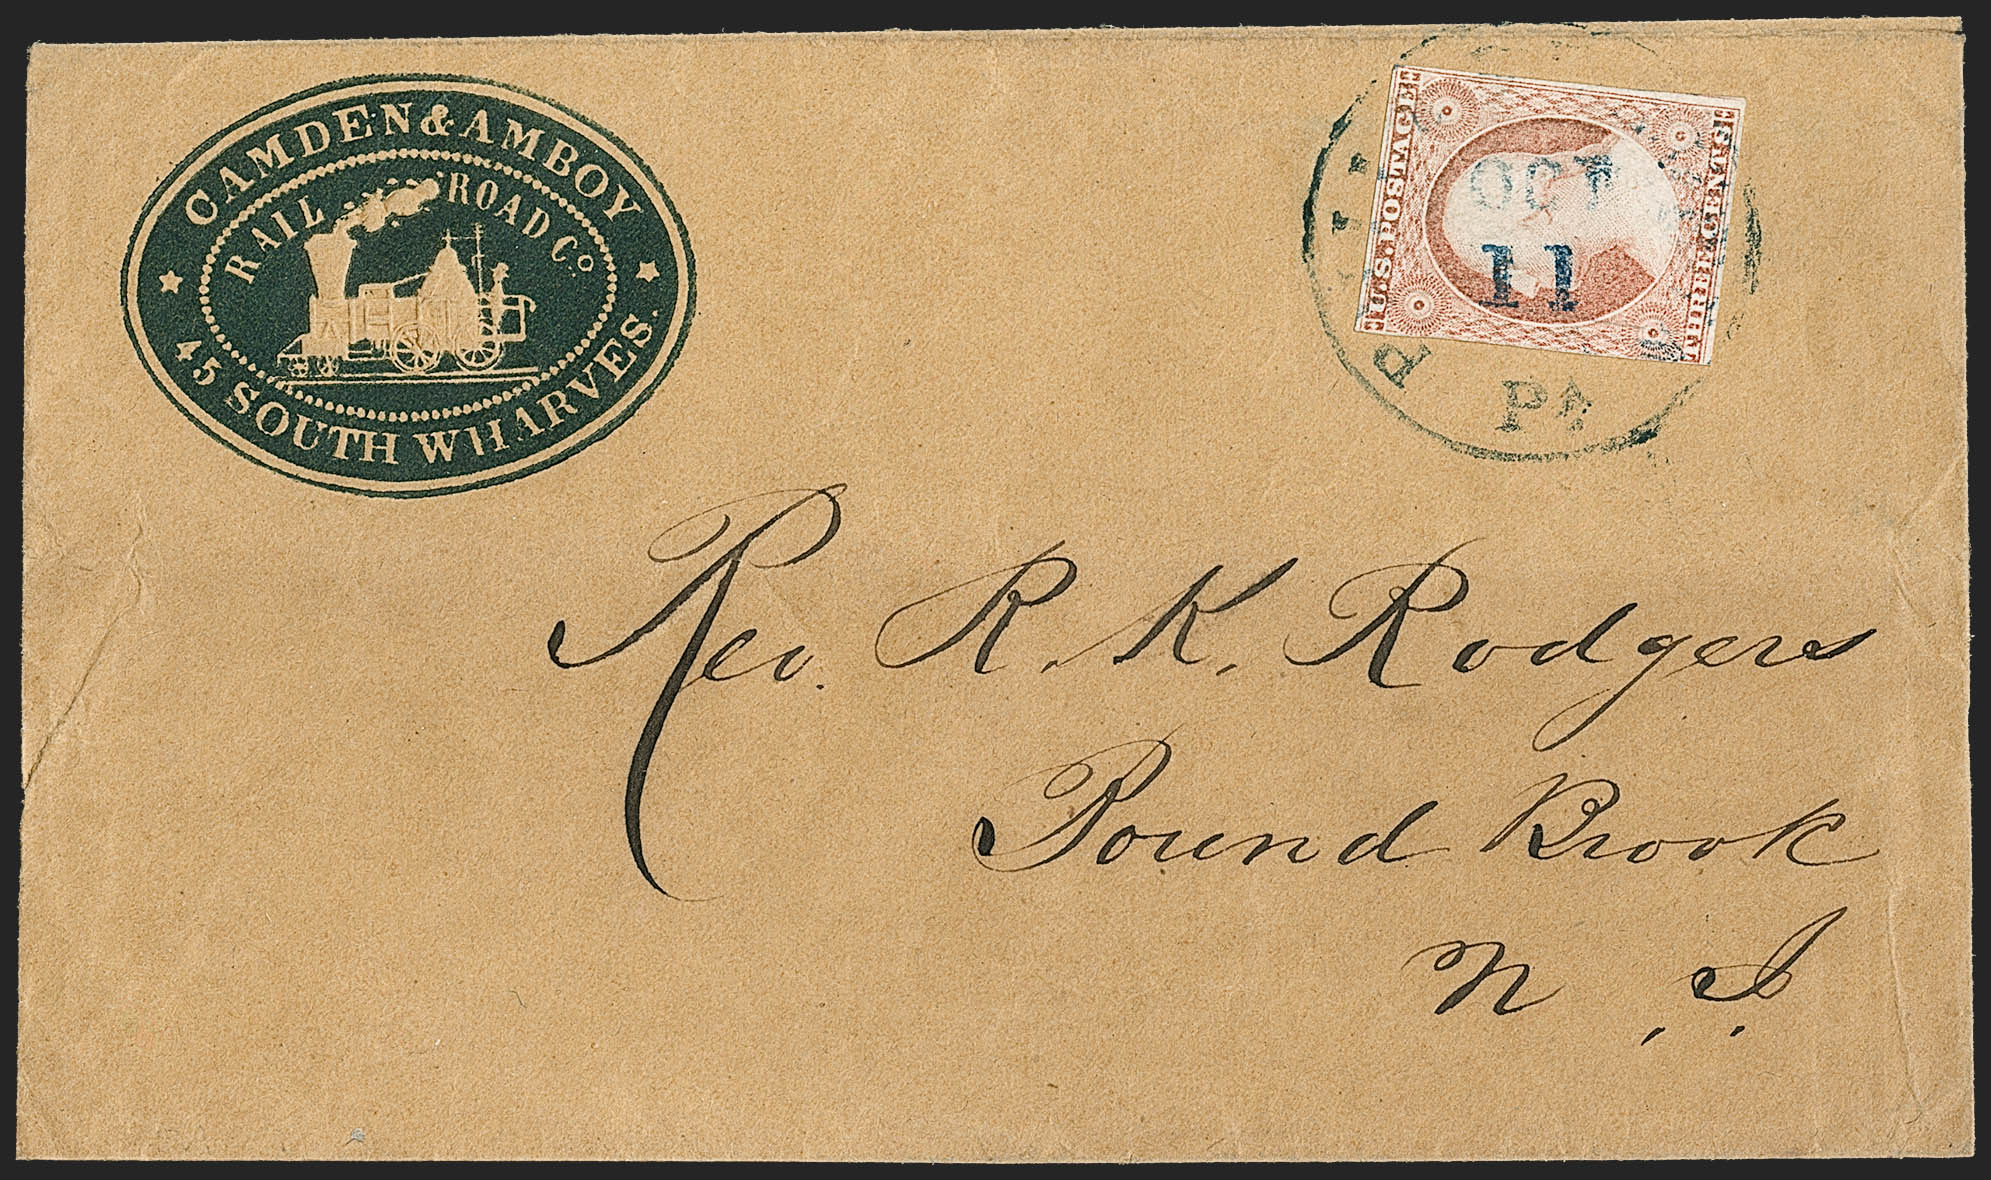 CAMDEN & AMBOY
RAIL ROAD Co.
45 SOUTH WHARVES.
U.S. POSTAGE
THREE CENTS
OCT
11
Pa
Rev. R. K. Rodgers
Bound Brook
N. J.